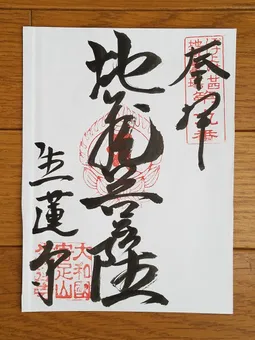 奉拝
地蔵菩薩
生蓮寺
大和國
寄足山